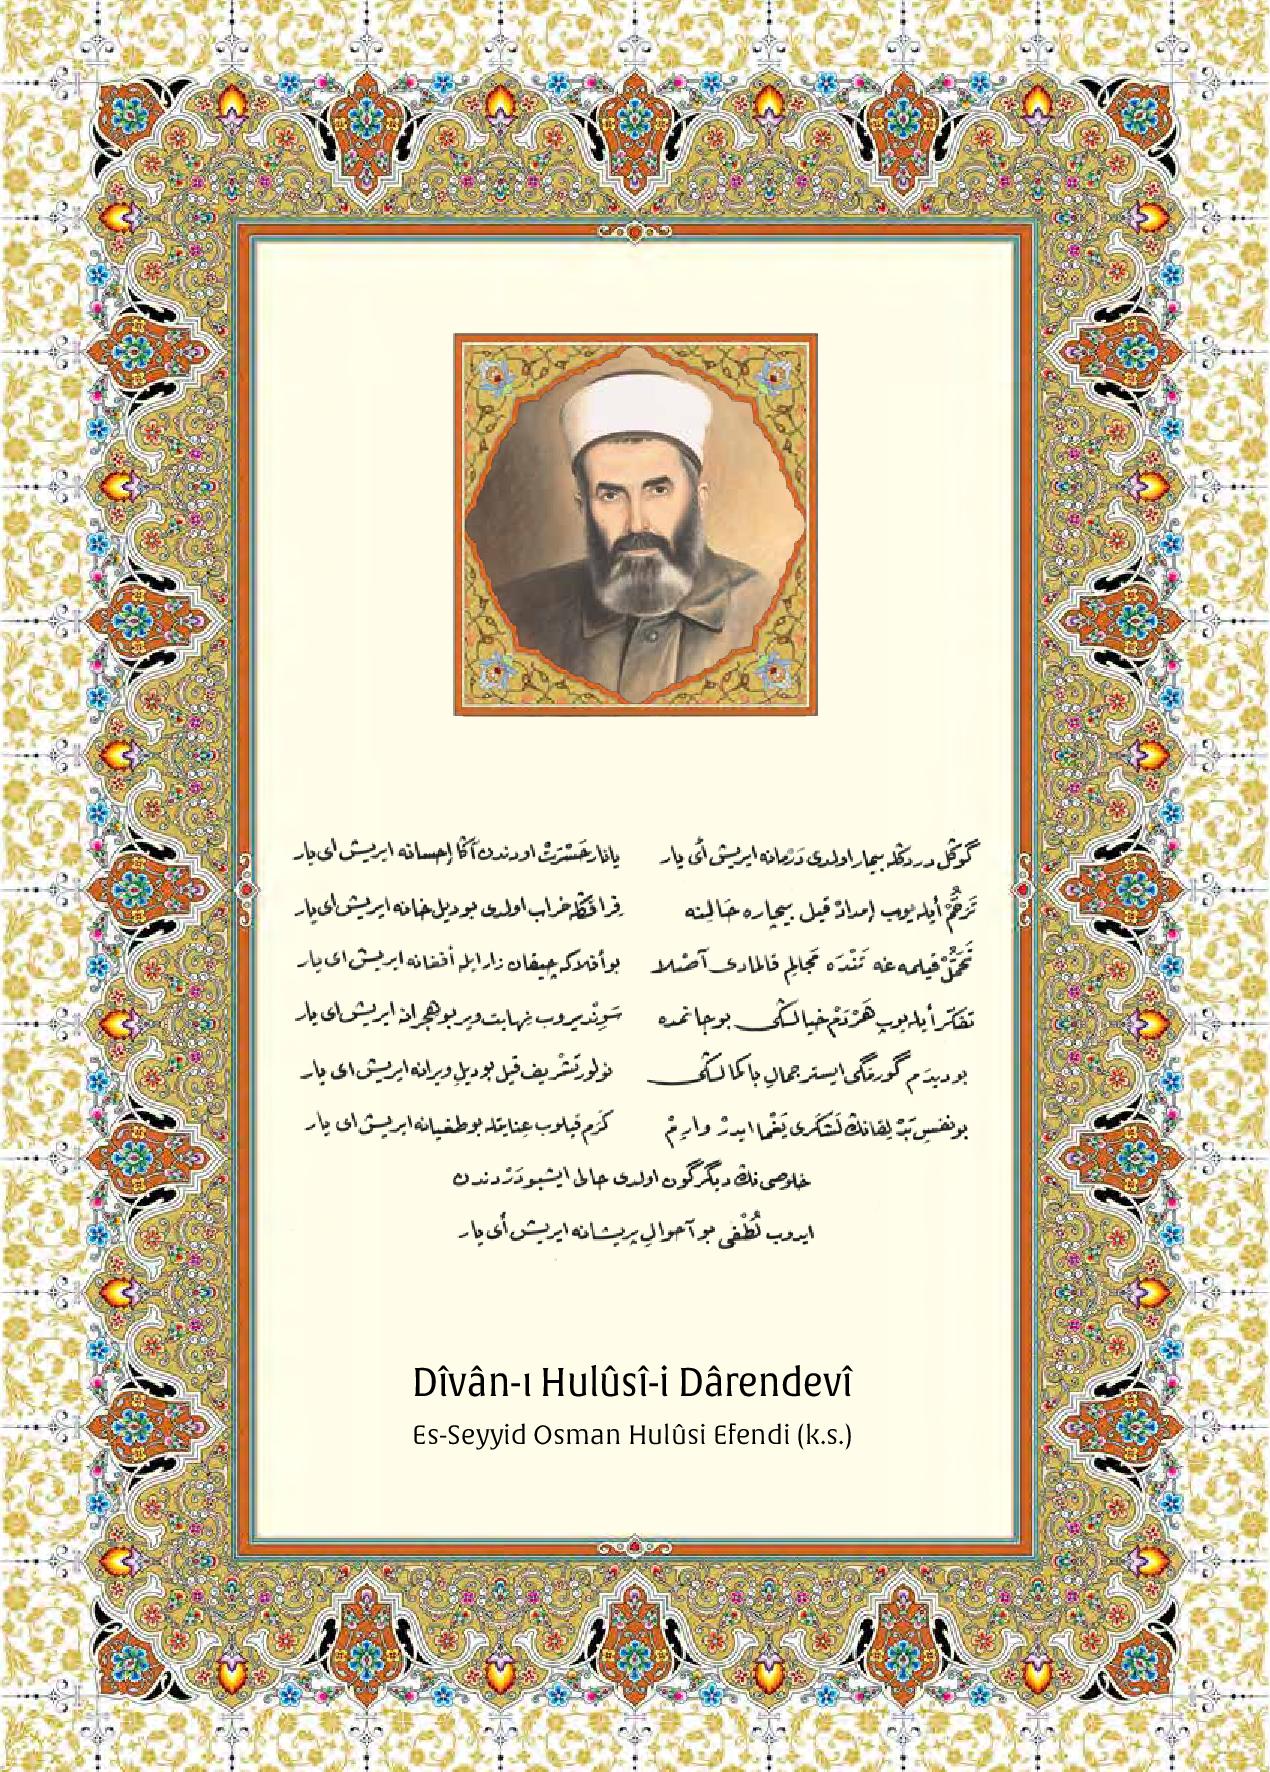 گوڭل دردڭله بیمار اولدی دَرْمانه ایریش أی یار یانار حَسْرَتْ اودندن آڭا إحسانه ایریش ای یار
تَرَحُّمْ أیله‌یوب إمدادْ قیل بیچاره حَالِینه فراقڭله خراب اولدی بو دیل خانه ایریش ای یار
تَحَمُّلْ قیلمه‌غه تَنْدَه مَجَالِم قالمادی آصْلا بو أفلاکه چیقان زار ایله أفغانه ایریش ای یار
تفکّر أیله‌یوب هَرْدَمْ خیالڭی بو جانمده سَویْندیروب نِهایت ویر بو هجرانه ایریش ای یار
بو دیدم گورمگی ایستر جمالِ با کمالڭی نولور تَشْریف قیل بو دیلِ ویرانه ایریش ای یار
بو نفسِ بَدْ لِقانڭ لَشکَری یَغْما ایدرْ وارِمْ کَرَم قیلوب عِنایتله بو طغیانه ایریش ای یار
خلوصی‌نڭ دیگرگون اولدی حالی ایشبو دَرْدندن
ایدوب لُطْفی بو آحوالِ پریشانه ایریش أی یار
Dîvân-ı Hulûsî-i Dârendevî
Es-Seyyid Osman Hulûsi Efendi (k.s.)